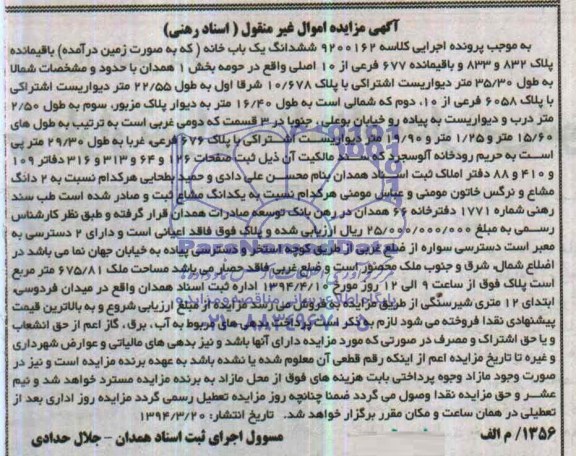 آگهی مزایده اموال غیر منقول ( اسناد رهنی )
به موجب پرونده اجرایی کلاسه ۹۲۰۰۱۶۲ ششدانگ یک باب خانه ( که به صورت زمین درآمده) باقیمانده
پلاک ۸۳۲ و ۸۳۳ و باقیمانده ۶۷۷ فرعی از ۱۰ اصلی واقع در حومه بخش ۱ همدان با حدود و مشخصات شمالا
به طول ۳۵/۳۰ متر دیواریست اشتراکی با پلاک ۱۰/۶۷۸ شرقا اول به طول ۲۲/۵۵ متر دیواریست اشتراکی
با پلاک ۶۰۵۸ فرعی از ۱۰، دوم که شمالی است به طول ۱۶/۴۰ متر به دیوار پلاک مزبور، سوم به طول ۲/۵۰
متر درب و دیواریست به پیاده رو خیابان بوعلی ، جنوبا در ۳ قسمت که دومی غربی است به ترتیب به طول های
۱۵/۶۰ متر و ۱/۲۵ متر و ۱۹/۹۰ متر دیواریست اشتراکی با پلاک ۶۷۶ فرعی، غربا به طول ۲۹/۳۰ متر پی
است به حریم رودخانه آلوسجرد که سند مالکیت آن ذیل ثبت صفحات ۱۲۶ و ۶۴ و ۳۱۳ و ۳۱۶ دفاتر ۱۰۹
و ۴۱۰ و ۸۸ دفتر املاک ثبت اسناد همدان بنام محسن علی دادی و حمید بطحایی هرکدام نسبت به ۲ دانگ
مشاع و نرگس خاتون مومنی و عباس مومنی هرکدام نسبت به یکدانگ مشاع ثبت و صادر شده است طب سند
رهنی شماره ۱۷۷۱ دفترخانه ۶۶ همدان در رهن بانک توسعه صادرات همدان قرار گرفته و طبق نظر کارشناس
رسمی به مبلغ ۲۵/۰۰۰/۰۰۰/۰۰۰ ریال ارزیابی شده و پلاک فوق فاقد اعیانی است و دارای ۲ دسترسی به
معبر است دسترسی سواره از ضلع غربی از طریق کوچه استخر و دسترسی پیاده به خیابان جهان نما می باشد در
اضلاع شمال، شرق و جنوب ملک محصور است و ضلع غربی فاقد حصار می باشد مساحت ملک ۶۷۵/۸۱ متر مربع
است پلاک فوق از ساعت ۹ الی ۱۲ روز مورخ ۱۳۹۴/۴/۱۰ اداره ثبت اسناد همدان واقع در میدان فردوسی،
ابتدای ۱۲ متری شیرسنگی از طریق مزایده به فروش می رسد مزایده از مبلغ ارزیابی شروع و به بالاترین قیمت
پیشنهادی نقدا فروخته می شود لازم به ذکر است پرداخت بدهی های مربوط به آب، برق، گاز اعم از حق انشعاب
و یا حق اشتراک و مصرف در صورتی که مورد مزایده دارای آنها باشد و نیز بدهی های مالیاتی و عوارض شهرداری
و غیره تا تاریخ مزایده اعم از اینکه رقم قطعی آن معلوم شده یا نشده باشد به عهده برنده مزایده است و نیز در
صورت وجود مازاد وجوه پرداختی بابت هزینه های فوق از محل مازاد به برنده مزایده مسترد خواهد شد و نیم
عشر و حق مزایده نقدا وصول می گردد ضمنا چنانچه روز مزایده تعطیل رسمی گردد مزایده روز اداری بعد از
تعطیلی در همان ساعت و مکان مقرر برگزار خواهد شد. تاریخ انتشار: ۱۳۹۴/۳/۲۰
۱۳۵۶/ م الف
مسوول اجرای ثبت اسناد همدان - جلال حدادی